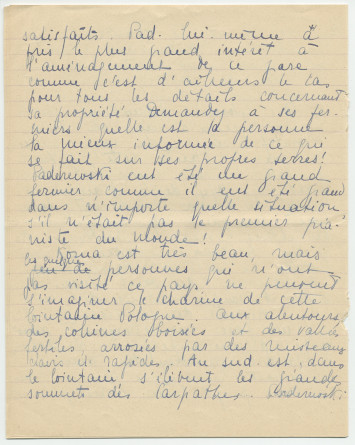 satisfaits. Pad. lui-même a
pris le plus grand intérêt à
l'aménagement de ce parc
comme c'est d'ailleurs le cas
pour tous les détails concernant
sa propriété. Demandez à ses fer-
miers quelle est la personne
la mieux informée de ce qui
se fait sur ses propres terres!
Paderewski eut été un grand
fermier comme il eut été grand
dans n'importe quelle situation
s'il n'était pas le premier pia-
niste du monde!
est très beau, mais
personnes qui n'ont
pas visité ce pays ne peuvent
s'imaginer le charme de cette
lointaine Pologne. Aux alentours
des collines boisées et des vallées
fertiles, arrosées par des ruisseaux
clairs et rapides. Au sud-est, dans
le lointain s'élèvent les grands
sommets des Carpathes. Paderewski